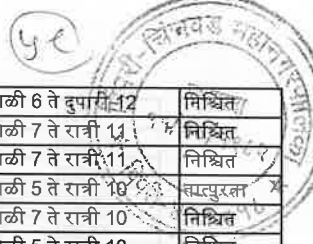 ५९
पिंपरी-चिंचवड महानगरपालिका
ळी 6 ते दुपारी 12 निश्चित
ळी 7 ते रात्री 11 निश्चित
ळी 7 ते रात्री 11 निश्चित
ळी 5 ते रात्री 10 तात्पुरता
ळी 7 ते रात्री 10 निश्चित
ळी 5 ते रात्री 10 निश्चित